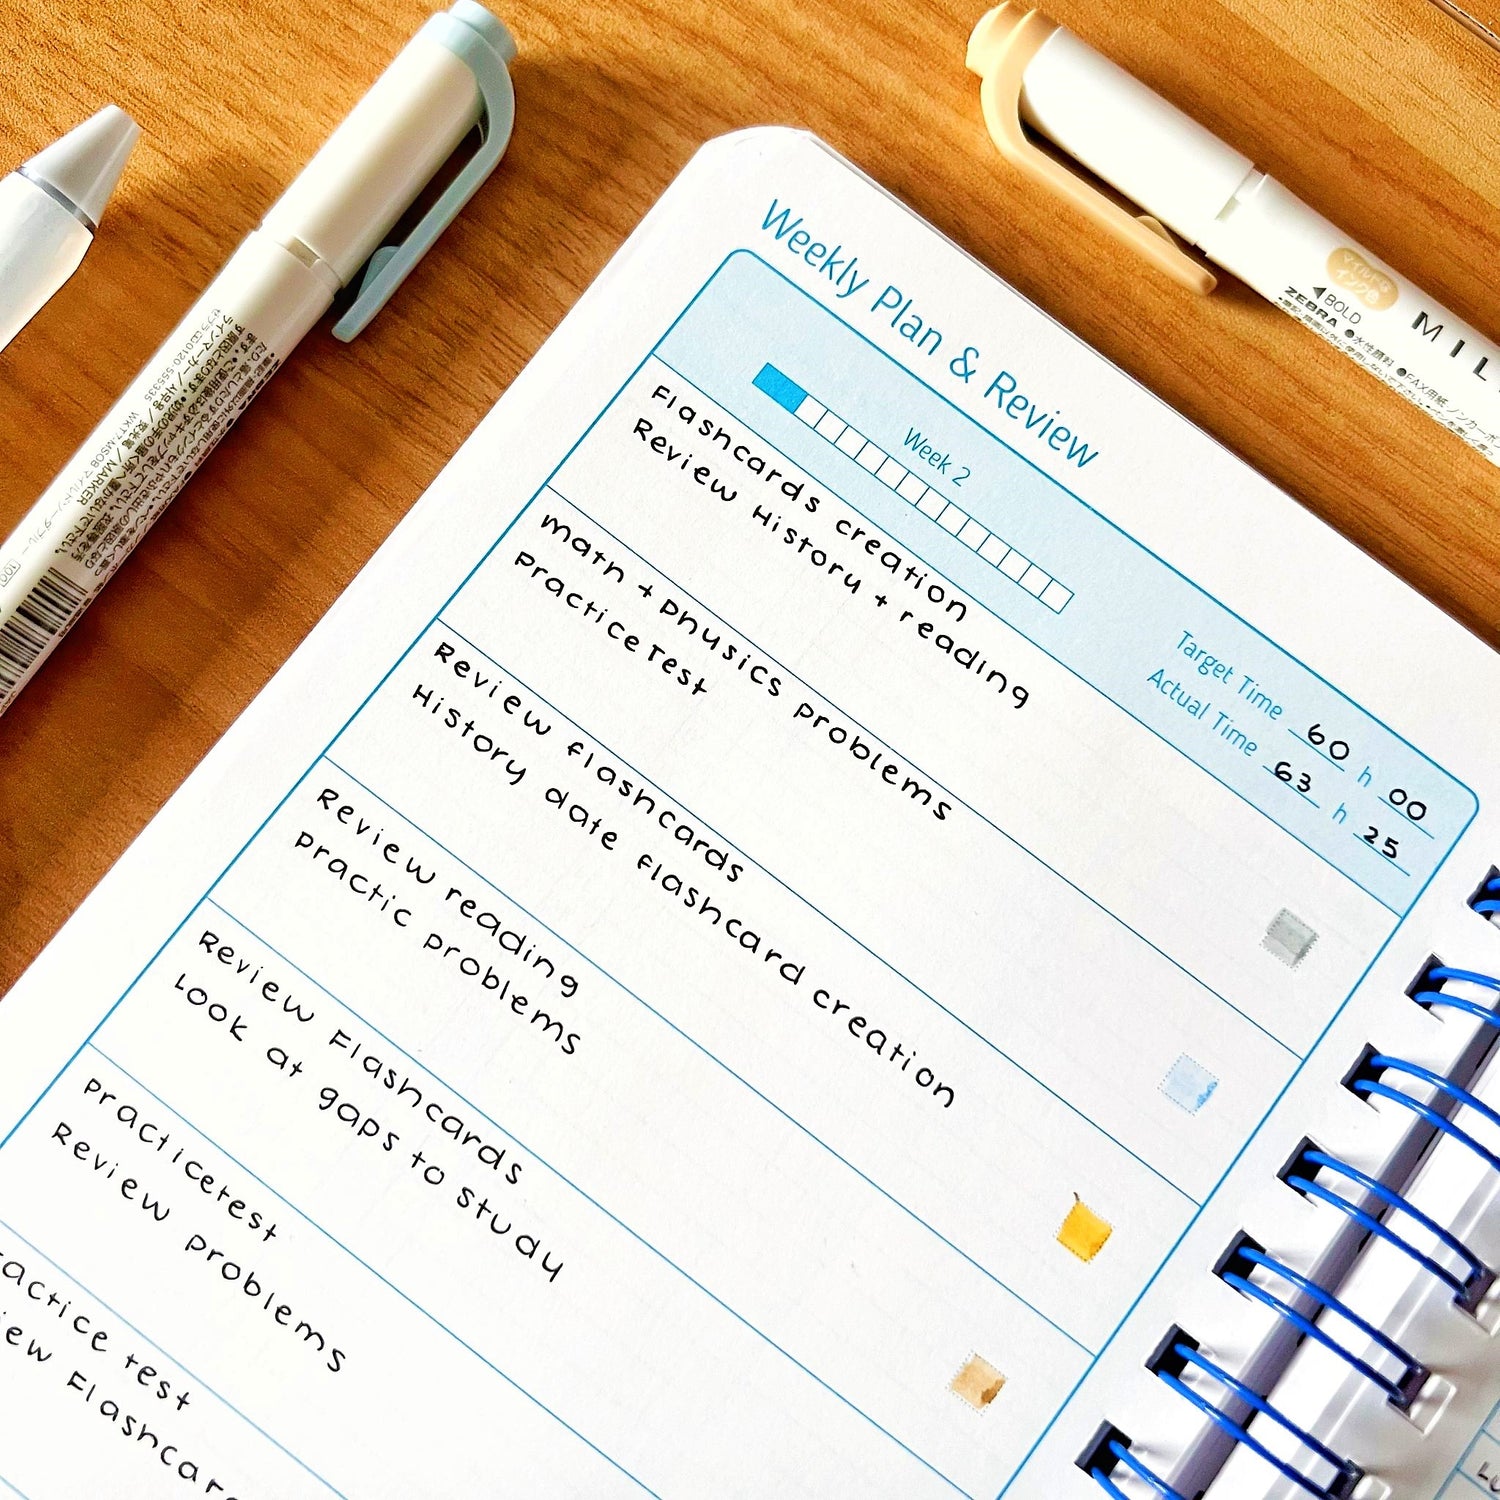 Weekly Plan & Review
Week 2
Target Time 60 h 00
Actual Time 63 h 25
Flashcards creation
Review History + reading
math + physics problems
practice Test
Review flashcards
History date flashcard creation
Review reading
practic problems
Review Flashcards
Look at gaps to study
practice test
Review problems
test
Flashcar
マイルドな
インク色
◀BOLD
ZEBRA
MIL
●水性顔料
●FAX用紙
ラインマーカー/
MARKER
100